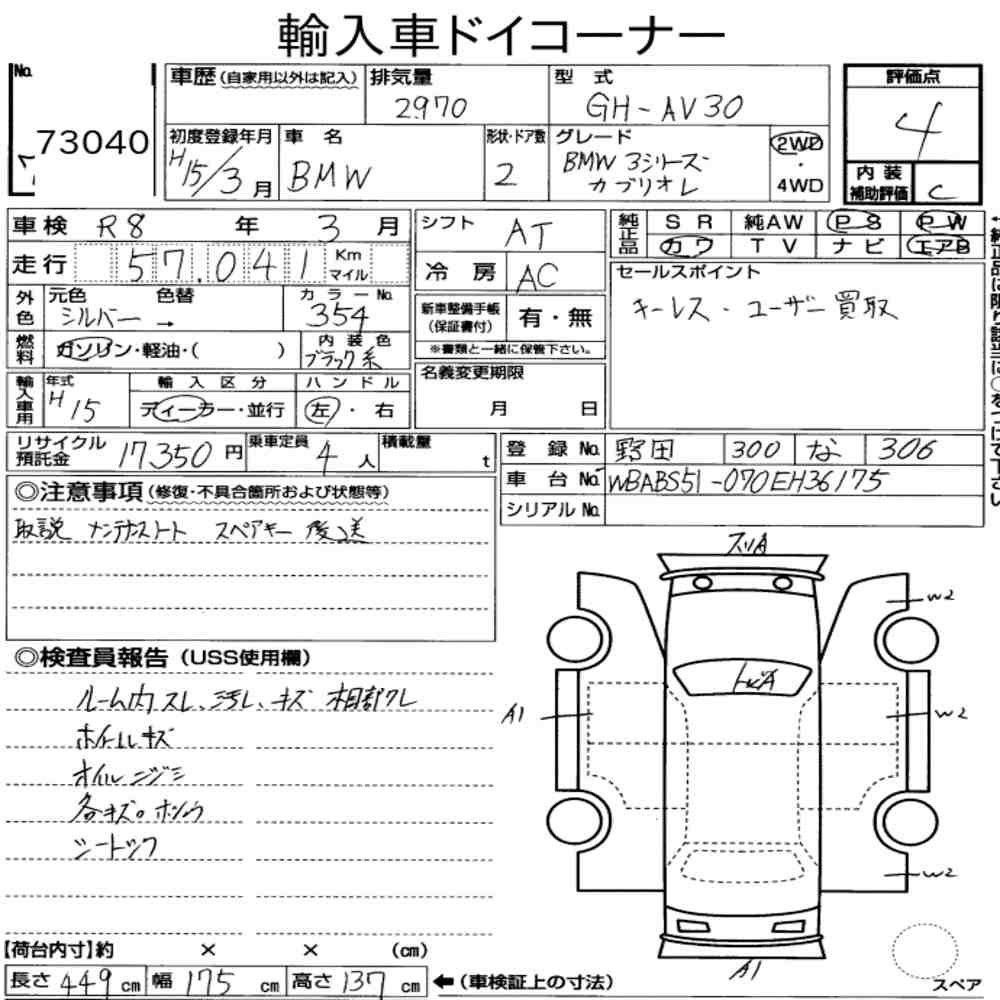 輸入車ドイコーナー
No.
73040
車歴(自家用以外は記入)
排気量
2970
型 式
GH-AV30
評価点
4
初度登録年月
H15/3月
車 名
BMW
形状・ドア数
2
グレード
BMW 3シリーズ
カブリオレ
2WD
・
4WD
内 装
補助評価
C
車検 R8 年 3 月
走行 57,041 Km
マイル
シフト
AT
冷 房
AC
純正品
SR 純AW PS PW
カワ TV ナビ エアB
セールスポイント
キーレス・ユーザー買取
外色
元色 色替
シルバー →
カラーNo.
354
燃料
ガソリン・軽油・( )
内 装 色
ブラック系
新車整備手帳
(保証書付)
有・無
※書類と一緒に保管下さい。
名義変更期限
月 日
輸入車用
年式
H15
輸 入 区 分
ディーラー・並行
ハ ン ド ル
左・右
リサイクル
預託金
17,350 円
乗車定員
4 人
積載量
t
登 録 No. 野田 300 な 306
車 台 No. WBABS51-070EH36175
シリアル No.
◎注意事項(修復・不具合箇所および状態等)
取説 メンテナンスノート スペアキー 後送
◎検査員報告(USS使用欄)
ルーム内スレ、汚レ、キズ
ホイールキズ
オイルニジミ
各キズ。
A1
トビA
W2
W2
W2
A1
スペア
【荷台内寸】約 × × (cm)
長さ 449 cm 幅 175 cm 高さ 137 cm ←(車検証上の寸法)